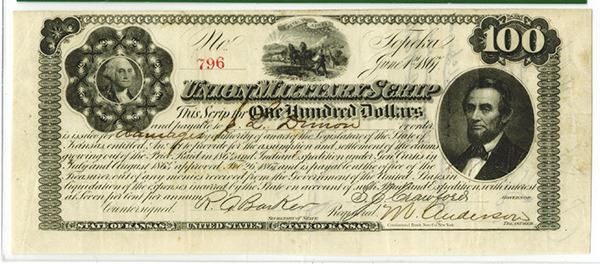 No. Topeka 100
796 June 1st 1867
UNION MILITARY SCRIP
This Scrip for One Hundred Dollars
and payable to or order
is issued for damages under authority of an act of the Legislature of the State of
Kansas, entitled "An Act to provide for the assumption and settlement of the claims
growing out of the Price Raid in 1864 and Indian Expedition under Gen. Curtis in
July and August 1864" approved 1867 and is payable at the office of the
Treasurer, out of any moneys received from the Government of the United States in
liquidation of the expenses incurred by the State on account of such Raid and Expedition, with interest
at Seven per Cent per annum. S. J. Crawford GOVERNOR
Countersigned. R. A. Barker SECRETARY OF STATE Registered M. Anderson TREASURER
STATE OF KANSAS UNITED STATES STATE OF KANSAS Continental Bank Note Co. New York